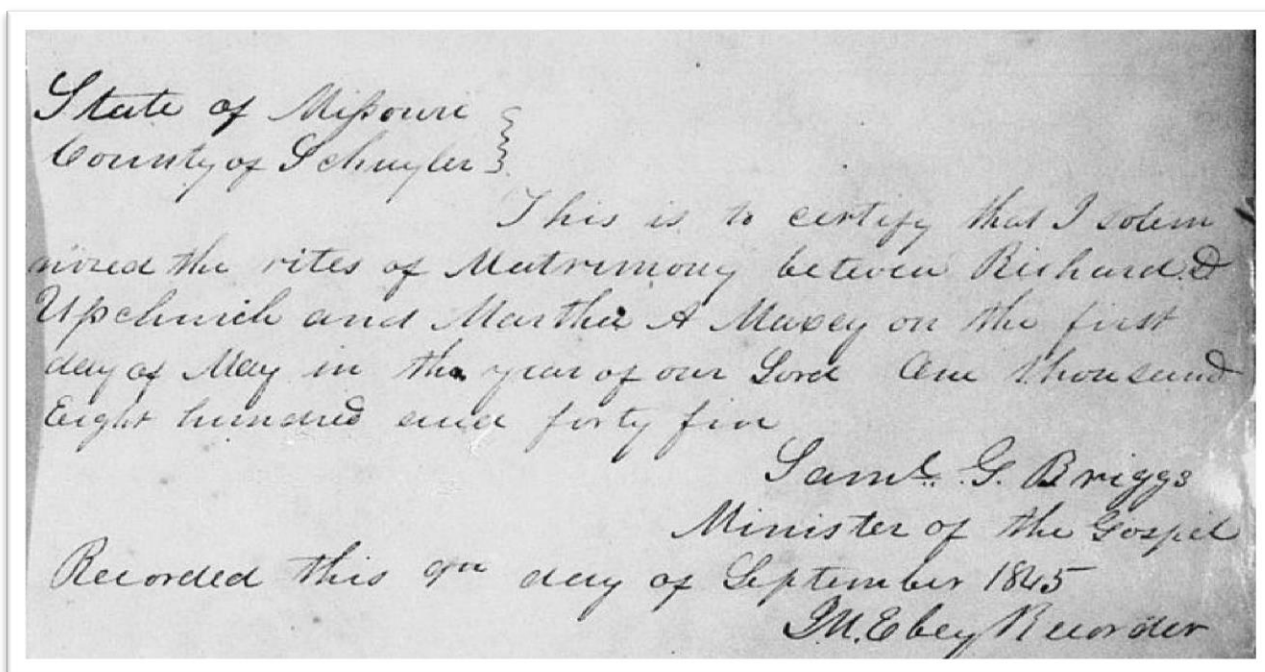 State of Missouri
County of Schuyler
This is to certify that I solem
nized the rites of Matrimony between Richard D
Upchurch and Martha A Maxey on the first
day of May in the year of our Lord One thousand
Eight hundred and forty five
Saml. G. Briggs
Minister of the Gospel
Recorded this 9th day of September 1845
J.M. Ebey Recorder